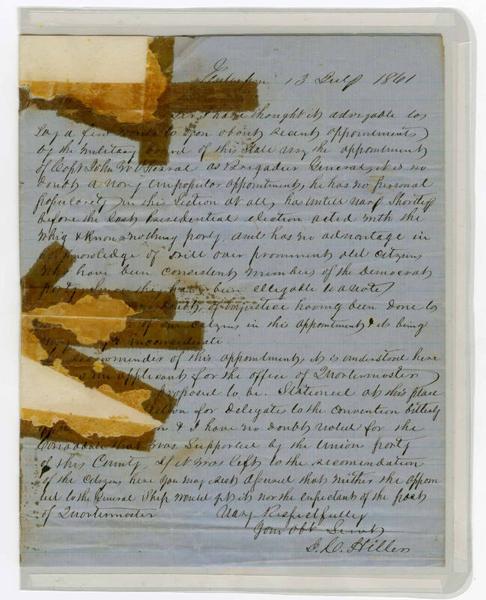 13 July 1861
I have thought it advisable to
say a few words to you about recent appointments
by the military board of this State say the appointment
of Capt John W OHarra as Brigadier General, it is no
doubt a very unpopular appointment, he has no personal
popularity in this section at all, has until very shortly
before the last Presidential election acted with the
Whig & Know nothing party, and has no advantage in
acknowledge of skill over prominent old citizens
who have been consistent members of the democrat
party since they have been elegable to a vote
doubt of injustice having been done to
of our citizens in this appointment & it being
inconsiderate
recommender of this appointment, it is understood here
an applicant for the office of Quortermaster
proposed to be Stationed at this place
for Delegates to the Convention bitterly
& I have no doubt voted for the
that was supported by the Union party
of this County If it was left to the recomendation
of the citizens here you may rest assured that neither the appoin
ted to the General Ship would get it nor the expectant of the post
of Quortermaster
Very Respectfully
Your Obt Servt